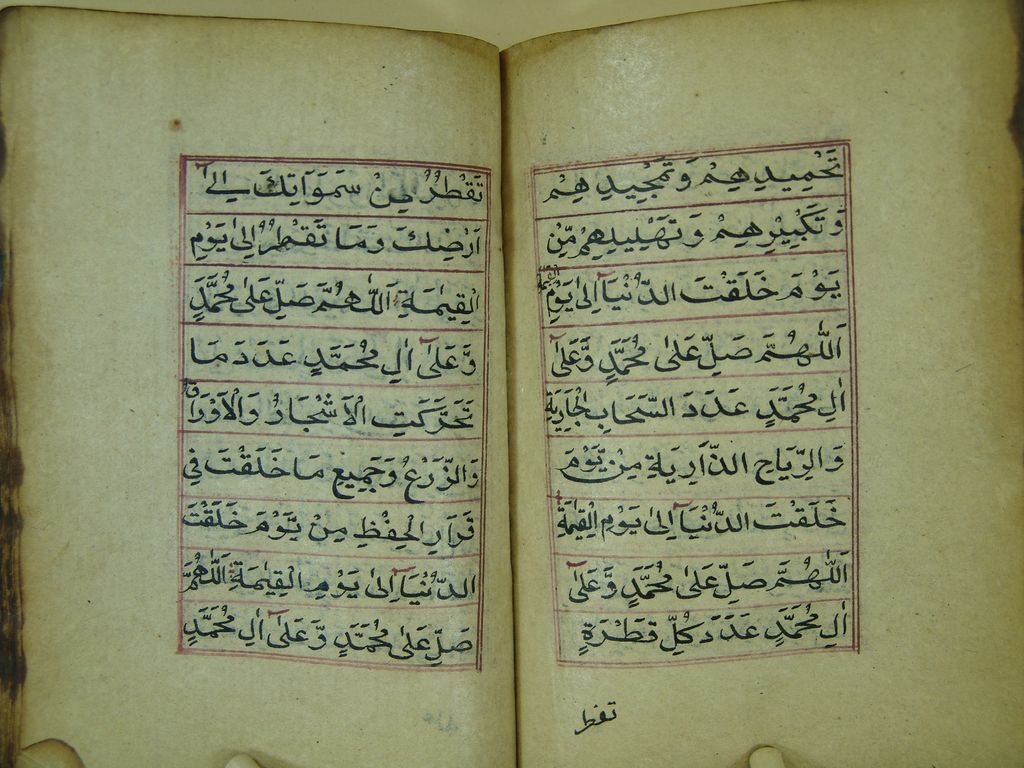 تَحْمِيدِهِمْ وَتَمْجِيدِهِمْ
وَتَكْبِيْرِهِمْ وَتَهْلِيلِهِمْ مِّنْ
يَوْمَ خَلَقْتَ الدُّنْيَا اِلىٰ يَوْمِ الْقِيٰمَةِ
اَللّٰهُمَّ صَلِّ عَلىٰ مُحَمَّدٍ وَّعَلىٰ
اٰلِ مُحَمَّدٍ عَدَدَ السَّحَابِ الْجَارِيَةِ
وَالرِّيَاحِ الذَّارِيَةِ مِنْ يَّوْمَ
خَلَقْتَ الدُّنْيَا اِلىٰ يَوْمِ الْقِيٰمَةِ
اَللّٰهُمَّ صَلِّ عَلىٰ مُحَمَّدٍ وَّعَلىٰ
اٰلِ مُحَمَّدٍ عَدَدَ كُلِّ قَطْرَةٍ
تقطر
تَقْطُرُ مِنْ سَمَوَاتِكَ اِلىٰ
اَرْضِكَ وَمَا تَقْطُرُ اِلىٰ يَوْمِ
الْقِيٰمَةِ اَللّٰهُمَّ صَلِّ عَلىٰ مُحَمَّدٍ
وَّعَلىٰ اٰلِ مُحَمَّدٍ عَدَدَ مَا
تَحَرَّكَتِ الْاَشْجَارُ وَالْاَوْرَاقُ
وَالزَّرْعُ وَجَمِيعِ مَا خَلَقْتَ فِي
قَرَارِ الْحِفْظِ مِنْ يَّوْمَ خَلَقْتَ
الدُّنْيَا اِلىٰ يَوْمِ الْقِيٰمَةِ اَللّٰهُمَّ
صَلِّ عَلىٰ مُحَمَّدٍ وَّعَلىٰ اٰلِ مُحَمَّدٍ